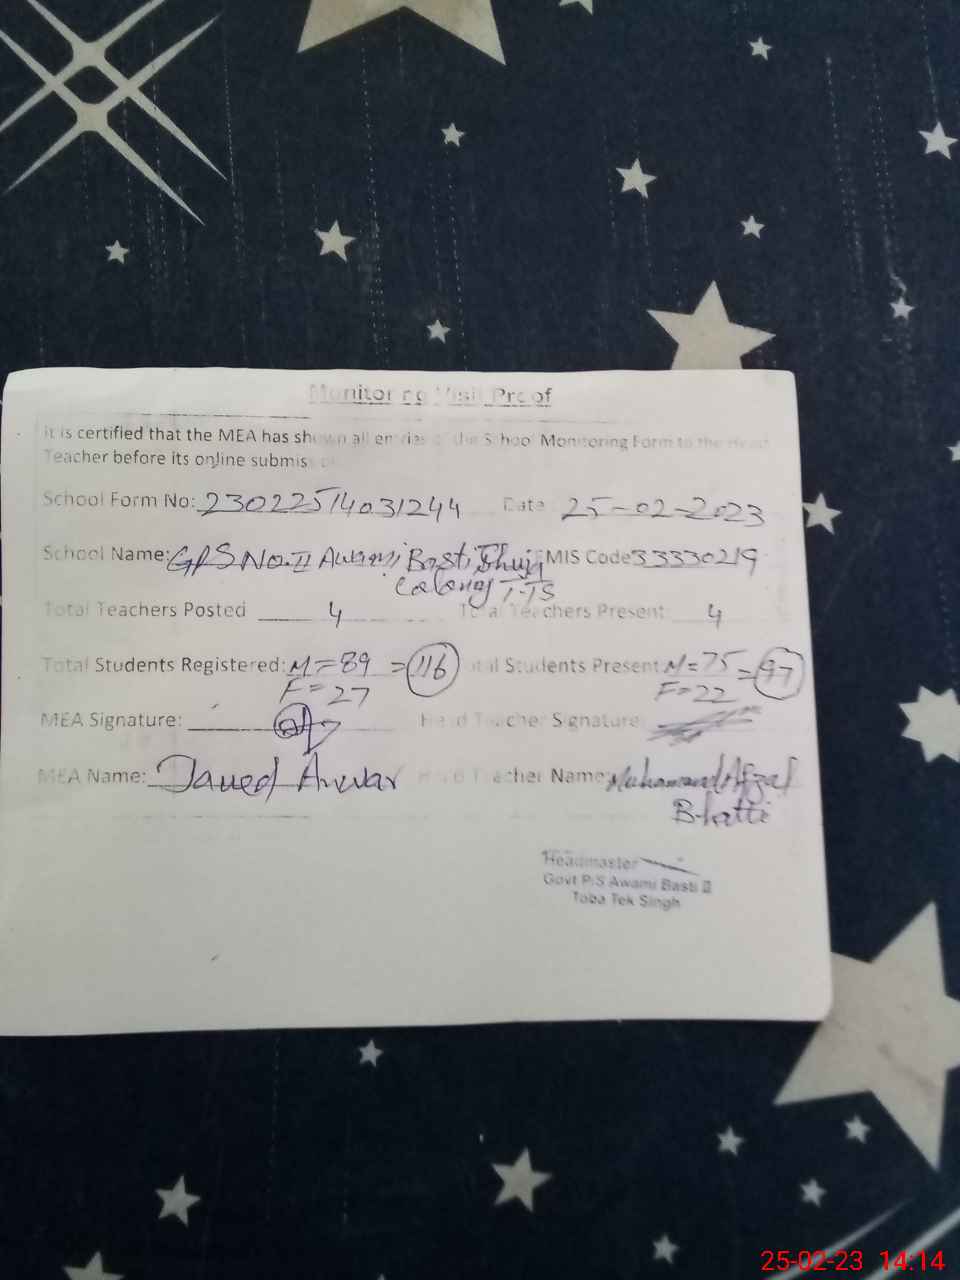 Monitoring Visit Proof
It is certified that the MEA has shown all entries of the School Monitoring Form to the Head
Teacher before its online submission.
School Form No: 23022514031244 Date 25-02-2023
School Name: GPS No. II Awami Basti EMIS Code 33330219
Colony T.T.S
Total Teachers Posted 4 Total Teachers Present 4
Total Students Registered: M=89 = 116 Total Students Present M=75 = 97
F=27 F=22
MEA Signature: Head Teacher Signature:
MEA Name: Javed Anwar Head Teacher Name: Muhammad Afzal
Bhatti
Headmaster
Govt P/S Awami Basti II
Toba Tek Singh
25-02-23 14:14